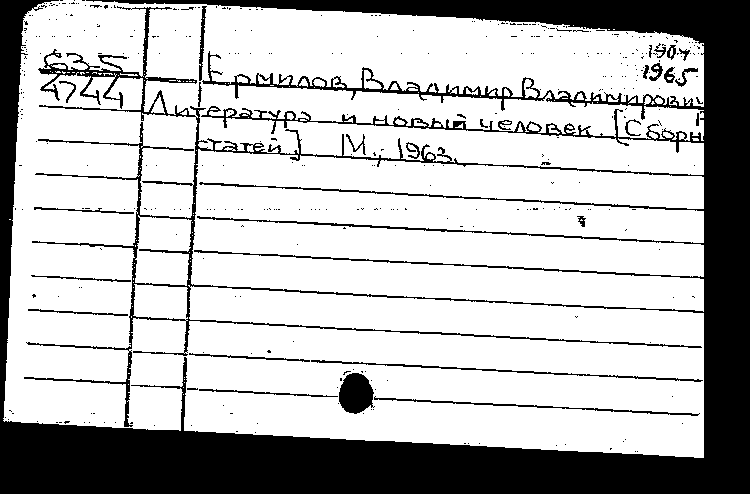 1904
1965
63-5
4744
Ермилов, Владимир Владимирович
Литература и новый человек. [Сборн
статей.] М., 1963.